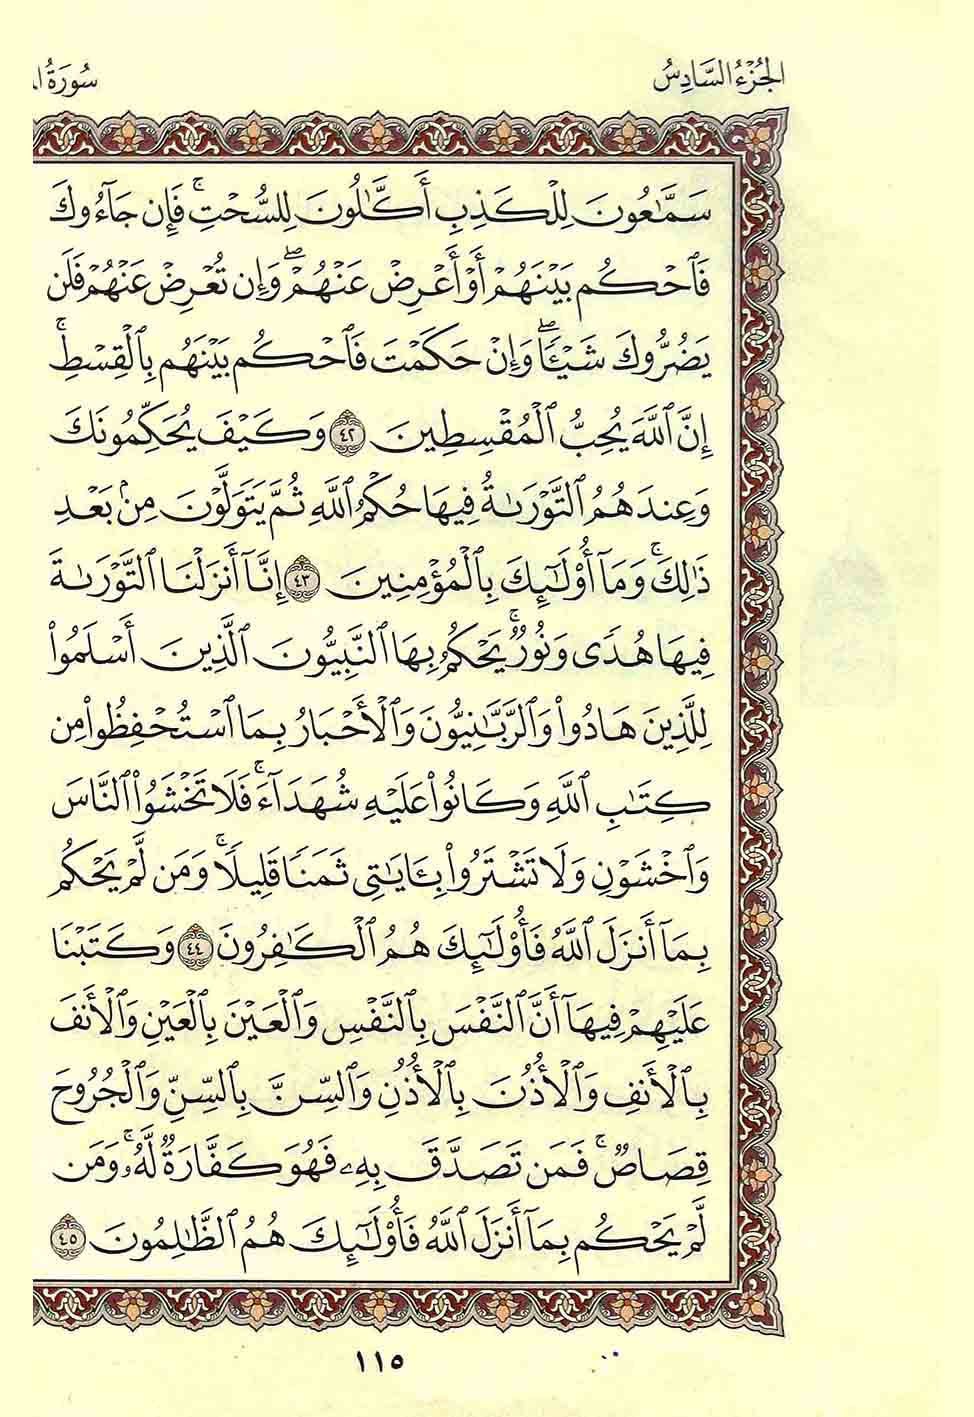 الجُزْءُ السَّادِسُ
سُورَةُ
سَمَّٰعُونَ لِلۡكَذِبِ أَكَّٰلُونَ لِلسُّحۡتِۚ فَإِن جَآءُوكَ
فَٱحۡكُم بَيۡنَهُمۡ أَوۡ أَعۡرِضۡ عَنۡهُمۡۖ وَإِن تُعۡرِضۡ عَنۡهُمۡ فَلَن
يَضُرُّوكَ شَيۡـٔٗاۖ وَإِنۡ حَكَمۡتَ فَٱحۡكُم بَيۡنَهُم بِٱلۡقِسۡطِۚ
إِنَّ ٱللَّهَ يُحِبُّ ٱلۡمُقۡسِطِينَ ٤٢ وَكَيۡفَ يُحَكِّمُونَكَ
وَعِندَهُمُ ٱلتَّوۡرَىٰةُ فِيهَا حُكۡمُ ٱللَّهِ ثُمَّ يَتَوَلَّوۡنَ مِنۢ بَعۡدِ
ذَٰلِكَۚ وَمَآ أُوْلَٰٓئِكَ بِٱلۡمُؤۡمِنِينَ ٤٣ إِنَّآ أَنزَلۡنَا ٱلتَّوۡرَىٰةَ
فِيهَا هُدٗى وَنُورٞۚ يَحۡكُمُ بِهَا ٱلنَّبِيُّونَ ٱلَّذِينَ أَسۡلَمُواْ
لِلَّذِينَ هَادُواْ وَٱلرَّبَّٰنِيُّونَ وَٱلۡأَحۡبَارُ بِمَا ٱسۡتُحۡفِظُواْ مِن
كِتَٰبِ ٱللَّهِ وَكَانُواْ عَلَيۡهِ شُهَدَآءَۚ فَلَا تَخۡشَوُاْ ٱلنَّاسَ
وَٱخۡشَوۡنِ وَلَا تَشۡتَرُواْ بِـَٔايَٰتِي ثَمَنٗا قَلِيلٗاۚ وَمَن لَّمۡ يَحۡكُم
بِمَآ أَنزَلَ ٱللَّهُ فَأُوْلَٰٓئِكَ هُمُ ٱلۡكَٰفِرُونَ ٤٤ وَكَتَبۡنَا
عَلَيۡهِمۡ فِيهَآ أَنَّ ٱلنَّفۡسَ بِٱلنَّفۡسِ وَٱلۡعَيۡنَ بِٱلۡعَيۡنِ وَٱلۡأَنفَ
بِٱلۡأَنفِ وَٱلۡأُذُنَ بِٱلۡأُذُنِ وَٱلسِّنَّ بِٱلسِّنِّ وَٱلۡجُرُوحَ
قِصَاصٞۚ فَمَن تَصَدَّقَ بِهِۦ فَهُوَ كَفَّارَةٞ لَّهُۥۚ وَمَن
لَّمۡ يَحۡكُم بِمَآ أَنزَلَ ٱللَّهُ فَأُوْلَٰٓئِكَ هُمُ ٱلظَّٰلِمُونَ ٤٥
١١٥